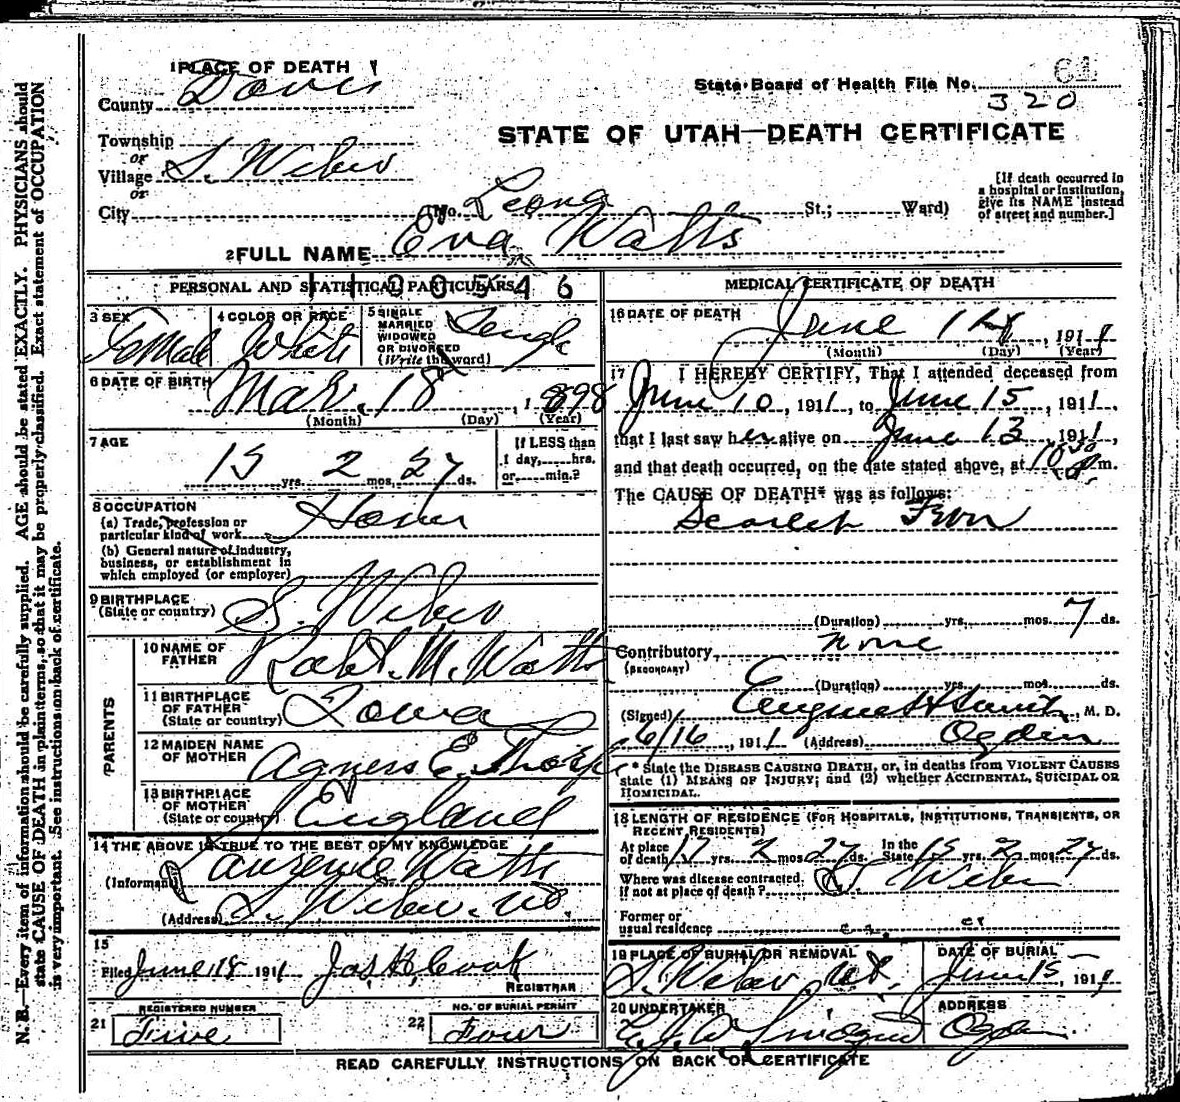 N. B.—Every item of information should be carefully supplied. AGE should be stated EXACTLY. PHYSICIANS should
state CAUSE OF DEATH in plain terms, so that it may be properly classified. Exact statement of OCCUPATION
is very important. See instructions on back of certificate.
1 PLACE OF DEATH
County Davis
Township
or
Village S. Weber
or
City
(No. St.; Ward)
State Board of Health File No. 61
320
STATE OF UTAH—DEATH CERTIFICATE
[If death occurred in
a hospital or institution,
give its NAME instead
of street and number.]
Leona
2 FULL NAME Eva Watts
PERSONAL AND STATISTICAL PARTICULARS
3 SEX Female
4 COLOR OR RACE White
5 SINGLE
MARRIED
WIDOWED
OR DIVORCED
(Write the word) Single
6 DATE OF BIRTH Mar. 18, 1898
(Month) (Day) (Year)
7 AGE
2 mos. 27 ds.
If LESS than
1 day, hrs.
or min.?
8 OCCUPATION
(a) Trade, profession or
particular kind of work
(b) General nature of industry,
business, or establishment in
which employed (or employer)
9 BIRTHPLACE
(State or country) S. Weber
PARENTS
10 NAME OF
FATHER Robt. M. Watts
11 BIRTHPLACE
OF FATHER
(State or country) Iowa
12 MAIDEN NAME
OF MOTHER Agness E. Thorpe
13 BIRTHPLACE
OF MOTHER
(State or country) England
14 THE ABOVE IS TRUE TO THE BEST OF MY KNOWLEDGE
(Informant) Watts
(Address) S. Weber. Ut.
15
Filed June 18 1911 Jas. Cook
REGISTRAR
REGISTERED NUMBER
21 Five
NO. OF BURIAL PERMIT
22 Four
MEDICAL CERTIFICATE OF DEATH
16 DATE OF DEATH
June 14, 1911
(Month) (Day) (Year)
17 I HEREBY CERTIFY, That I attended deceased from
June 10, 1911, to June 15, 1911,
that I last saw her alive on June 13, 1911,
and that death occurred, on the date stated above, at 10 30 P.m.
The CAUSE OF DEATH* was as follows:
Scarlet Fever
(Duration) yrs. mos. 7 ds.
Contributory none
(SECONDARY)
(Duration) yrs. mos. ds.
(Signed) Eugene H Smith, M. D.
6/16, 1911 (Address) Ogden
* State the DISEASE CAUSING DEATH, or, in deaths from VIOLENT CAUSES
state (1) MEANS OF INJURY; and (2) whether ACCIDENTAL, SUICIDAL OR
HOMICIDAL.
18 LENGTH OF RESIDENCE (FOR HOSPITALS, INSTITUTIONS, TRANSIENTS, OR
RECENT RESIDENTS)
At place
of death yrs. 2 mos. 27 ds. In the
State yrs. 2 mos. 27 ds.
Where was disease contracted,
if not at place of death? S Weber
Former or
usual residence
19 PLACE OF BURIAL OR REMOVAL
S. Weber, Ut.
DATE OF BURIAL
June 15, 1911
20 UNDERTAKER
ADDRESS
Ogden
READ CAREFULLY INSTRUCTIONS ON BACK OF CERTIFICATE